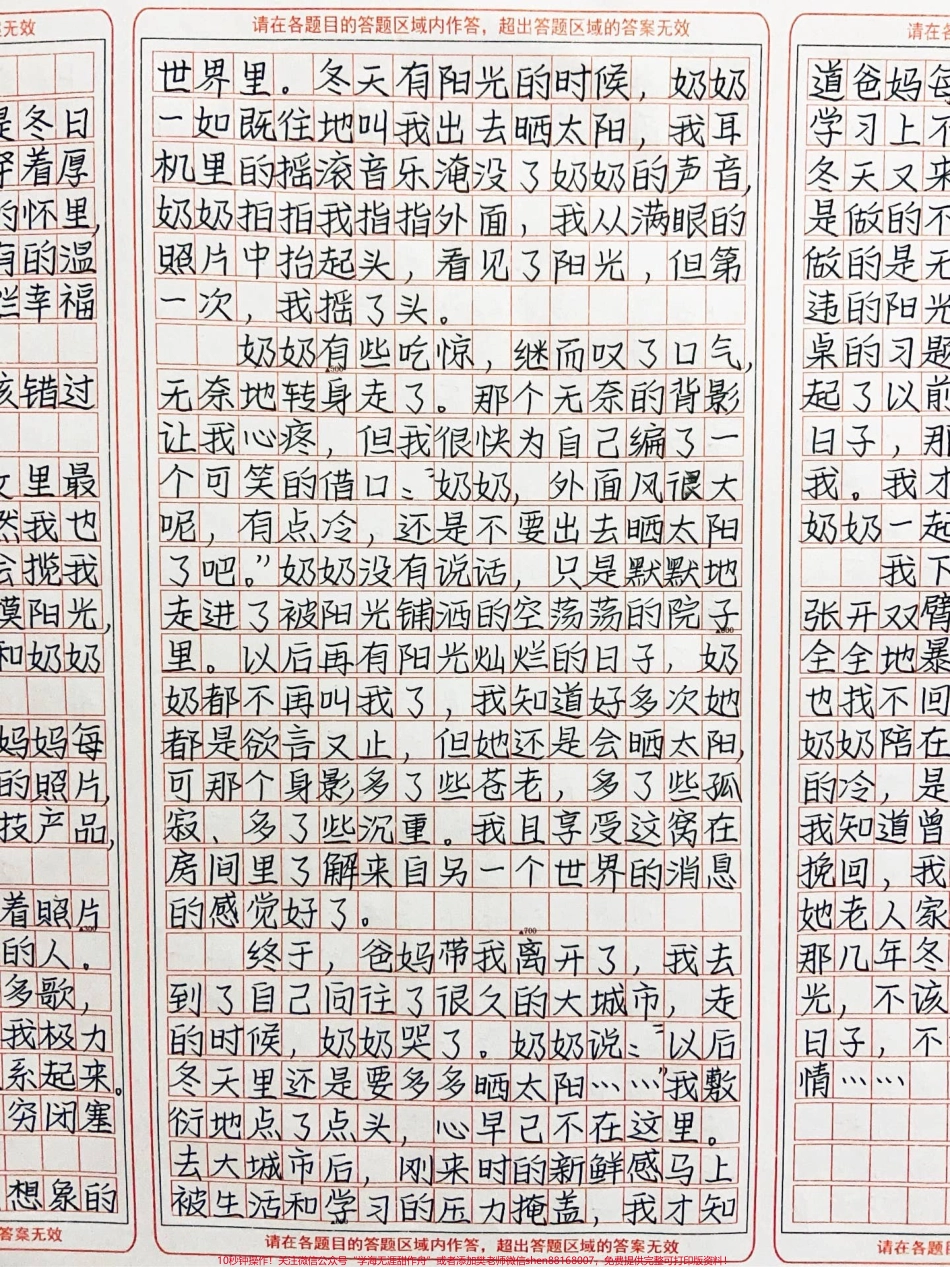 案无效
是冬日
穿着厚
的怀里,
有的温
烂幸福
该错过
里最
然我也
会揽我
漠阳光,
和奶奶
妈妈每
的照片,
技产品,
着照片
▲300
的人。
多歌,
我极力
系起来。
穷闭塞
想象的
答案无效
请在各题目的答题区域内作答,超出答题区域的答案无效
世界里。冬天有阳光的时候,奶奶
一如既往地叫我出去晒太阳,我耳
机里的摇滚音乐淹没了奶奶的声音,
奶奶拍拍我指指外面,我从满眼的
照片中抬起头,看见了阳光,但第
一次,我摇了头。
奶奶有些吃惊,继而叹了口气,
▲500
无奈地转身走了。那个无奈的背影
让我心疼,但我很快为自己编了一
个可笑的借口:“奶奶,外面风很大
呢,有点冷,还是不要出去晒太阳
了吧。”奶奶没有说话,只是默默地
走进了被阳光铺洒的空荡荡的院子
▲600
里。以后再有阳光灿烂的日子,奶
奶都不再叫我了,我知道好多次她
都是欲言又止,但她还是会晒太阳,
可那个身影多了些苍老,多了些孤
寂、多了些沉重。我且享受这窝在
房间里了解来自另一个世界的消息
的感觉好了。
▲700
终于,爸妈带我离开了,我去
到了自己向往了很久的大城市,走
的时候,奶奶哭了。奶奶说:“以后
冬天里还是要多多晒太阳……”我敷
衍地点了点头,心早已不在这里。
去大城市后,刚来时的新鲜感马上
被生活和学习的压力掩盖,我才知
请在各题目的答题区域内作答,超出答题区域的答案无效
请在各
道爸妈每
学习上不
冬天又来
是做的不
做的是无
违的阳光
桌的习题
起了以前
日子,那
我。我才
奶奶一起
我下
张开双臂
全全地暴
也找不回
奶奶陪在
的冷,是
我知道曾
挽回,我
她老人家
那几年冬
光,不该
日子,不
情……
请在各题目
10秒钟操作!关注微信公众号“学海无涯甜作舟”或者添加樊老师微信shen88168007,免费提供完整可打印版资料!